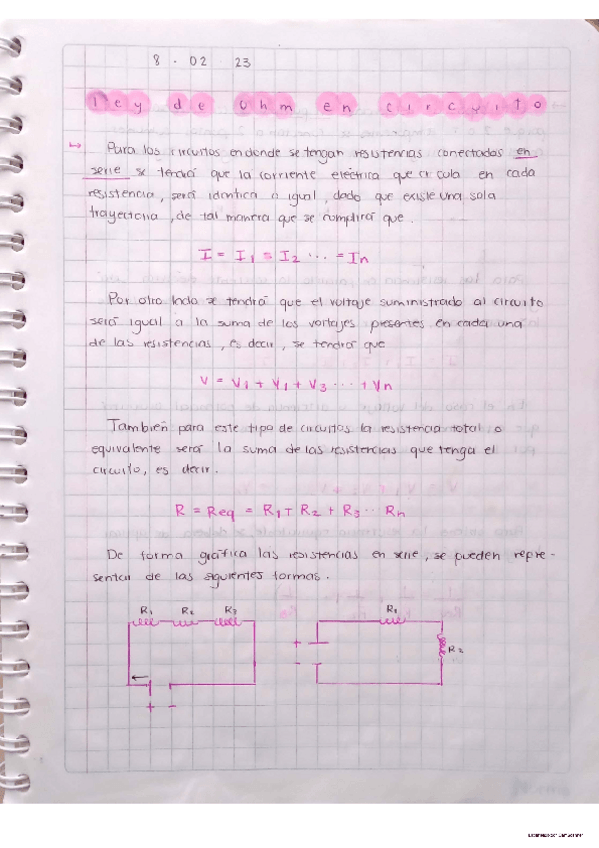 8 · 02 23
ley de Ohm en circuito
→ Para los circuitos en donde se tengan resistencias conectadas en
serie se tendrá que la corriente eléctrica que circula en cada
resistencia, será identica o igual, dado que existe una sola
trayectoria, de tal manera que se cumplirá que.
I = I1 = I2 ... = In
Por otro lado se tendrá que el voltaje suministrado al circuito
será igual a la suma de los voltajes presentes en cada una
de las resistencias, es decir, se tendrá que
V = V1 + V1 + V3 ... + Vn
También para este tipo de circuitos la resistencia total o
equivalente será la suma de las resistencias que tenga el
circuito, es decir.
R = Req = R1 + R2 + R3 ... Rn
De forma gráfica las resistencias en serie, se pueden repre-
sentar de las siguientes formas.
R1 R2 R3
R1
R2
+ -
+
-